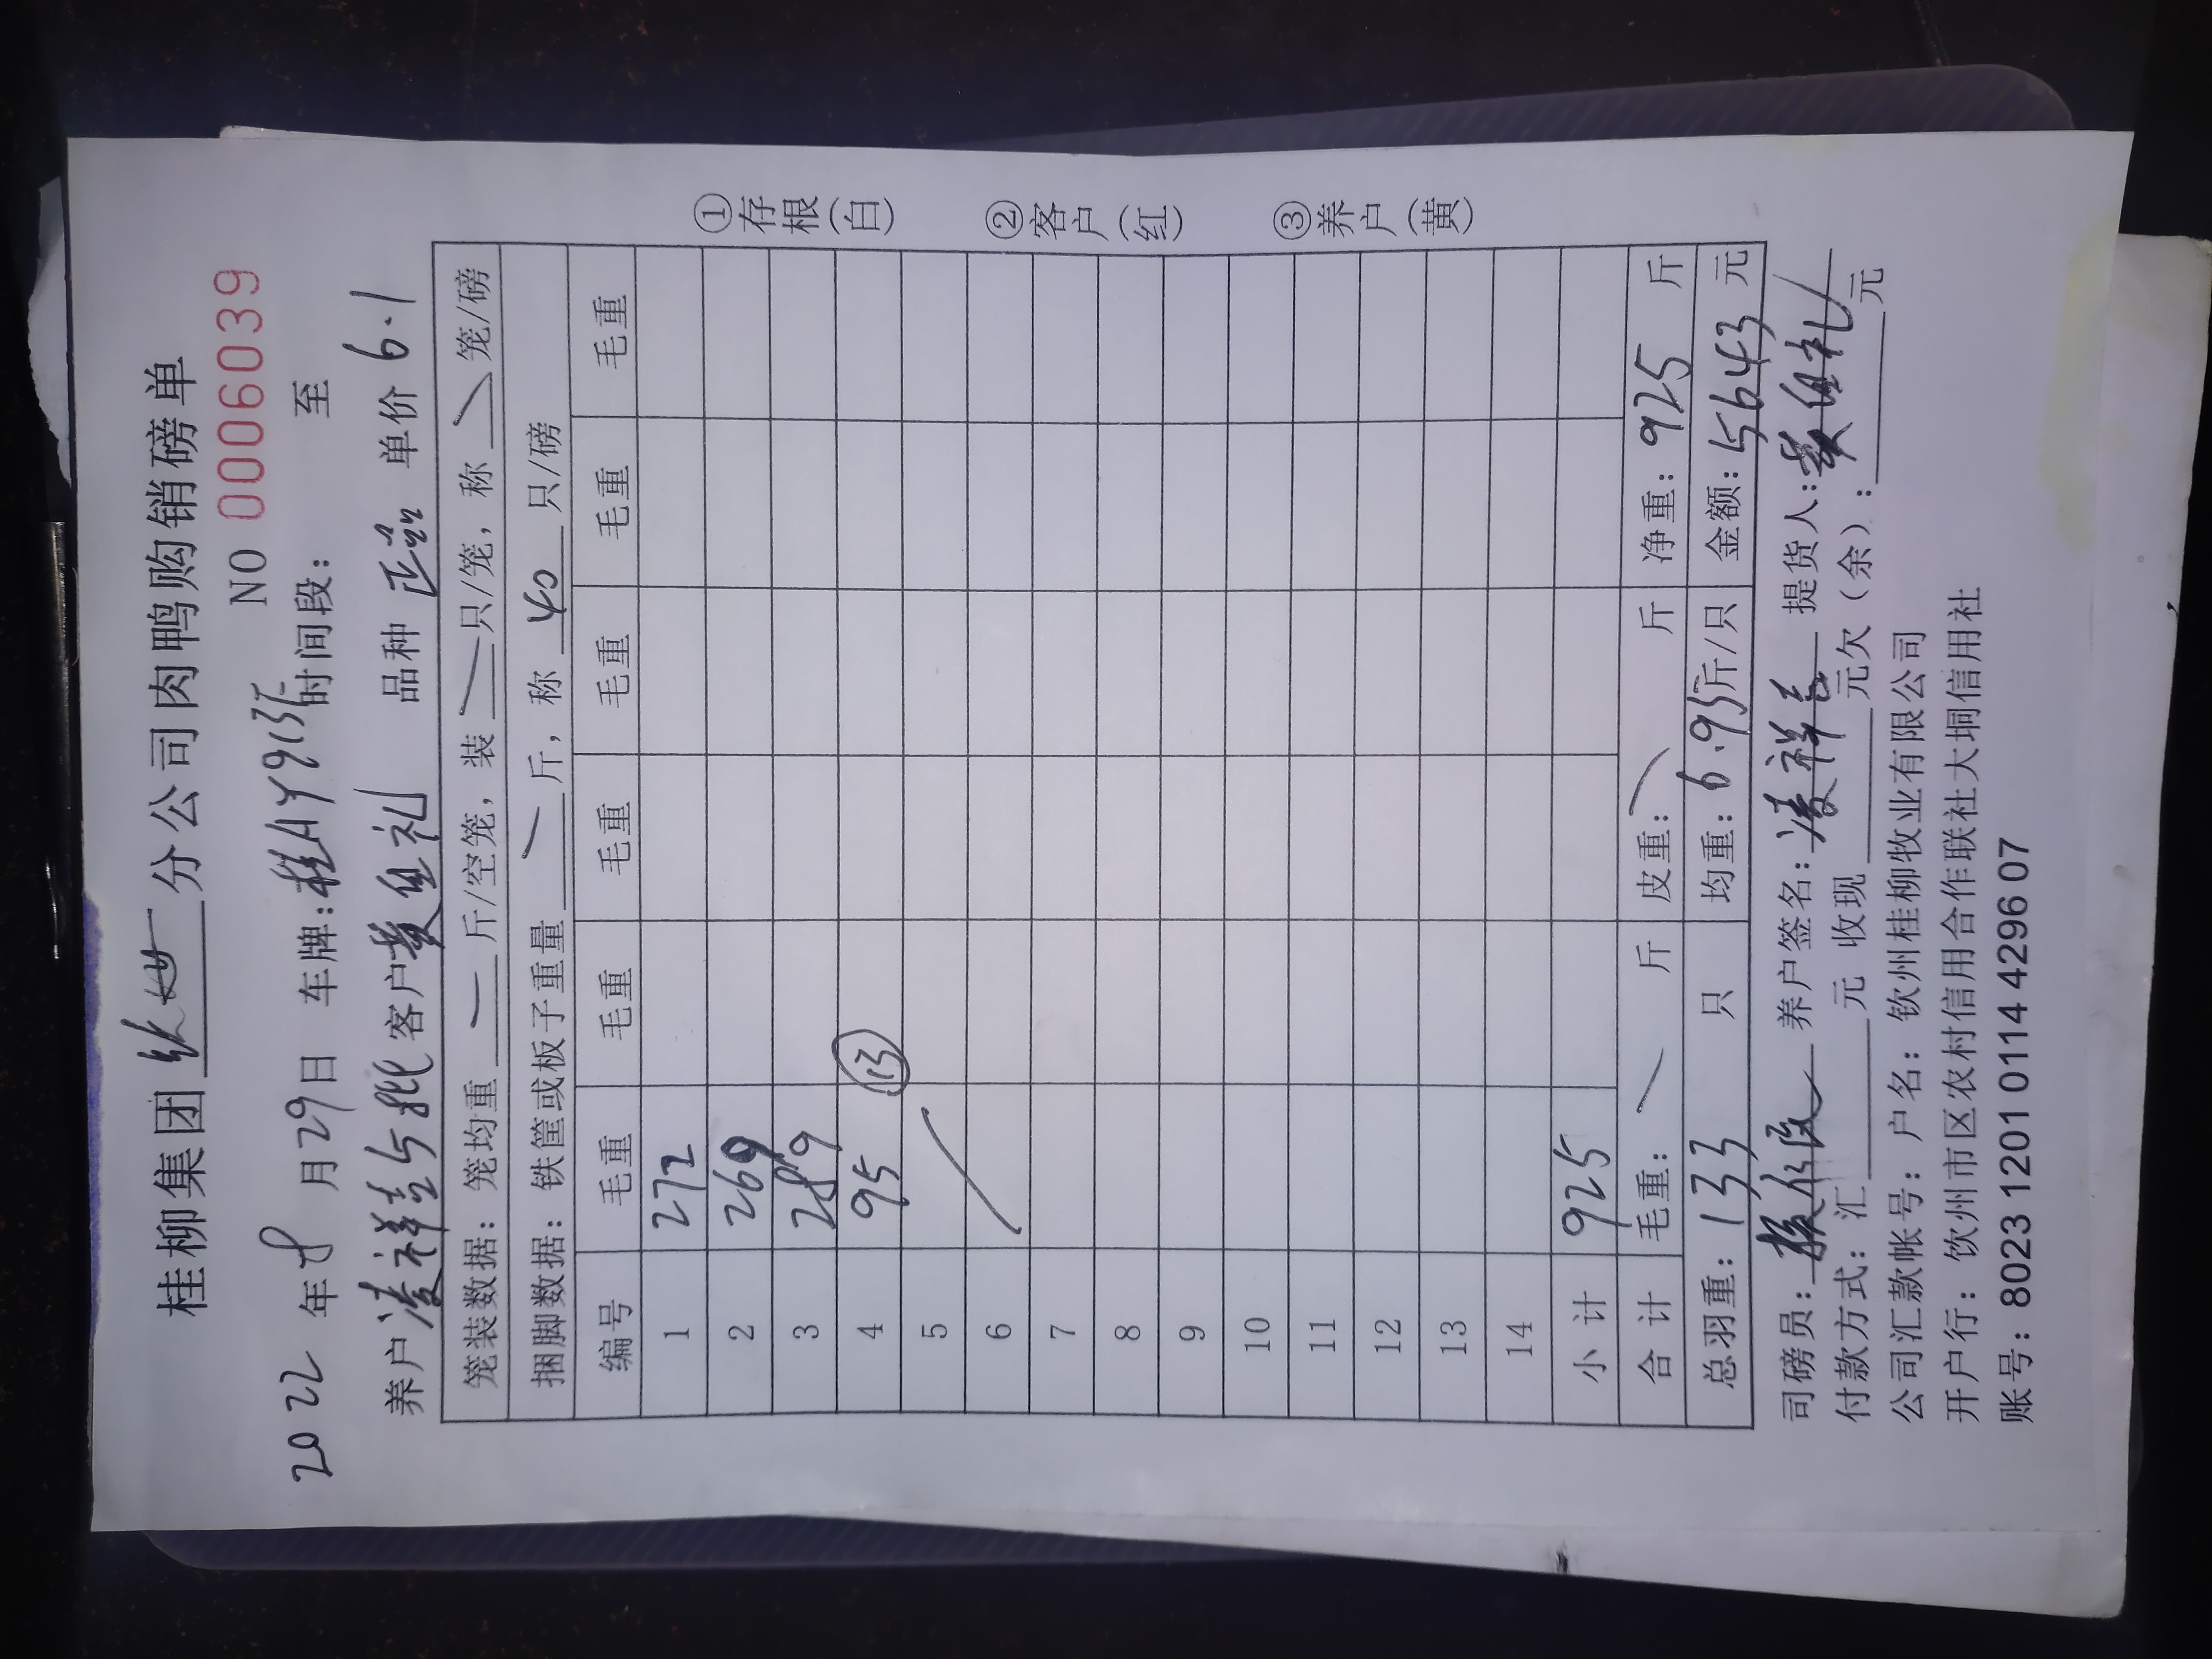 桂柳集团 分公司肉鸭购销磅单
NO 0006039
2022 年 8 月 29 日 车牌:桂AY913 时间段: 至
养户 凌祥 客户 黄 礼 品种 正品 单价 6.1
笼装数据: 笼均重 斤/空笼, 装 只/笼, 称 笼/磅
捆脚数据: 铁筐或板子重量 斤, 称 40 只/磅
编号 毛重 毛重 毛重 毛重 毛重 毛重
1 272
2 269
3 289
4 95 ⑬
5
6
7
8
9
10
11
12
13
14
小计 925
合计 毛重: 斤 皮重: 斤 净重: 925 斤
总羽重: 133 只 均重: 6.95 斤/只 金额: 5643 元
司磅员: 养户签名: 凌祥 提货人: 黄 礼
付款方式: 汇 元 收现 元欠(余): 元
公司汇款帐号: 户名: 钦州桂柳牧业有限公司
开户行: 饮州市区农村信用合作联社大垌信用社
账号: 8023 1201 0114 4296 07
①存根(白)
②客户(红)
③养户(黄)